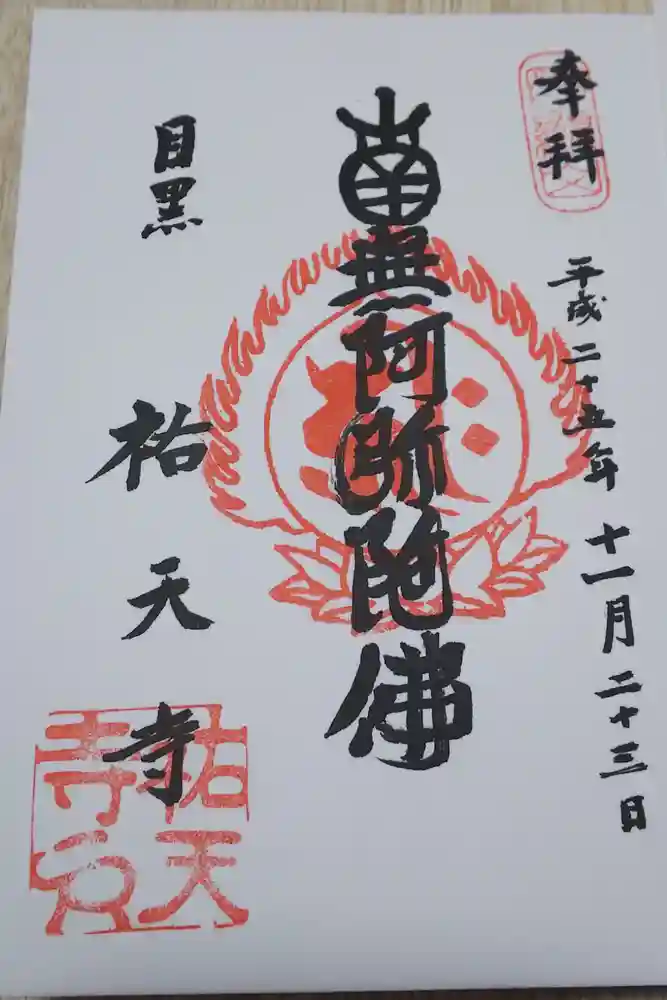 奉拝
平成二十五年十一月二十三日
南無阿弥陀佛
目黒
祐天寺
祐天
寺